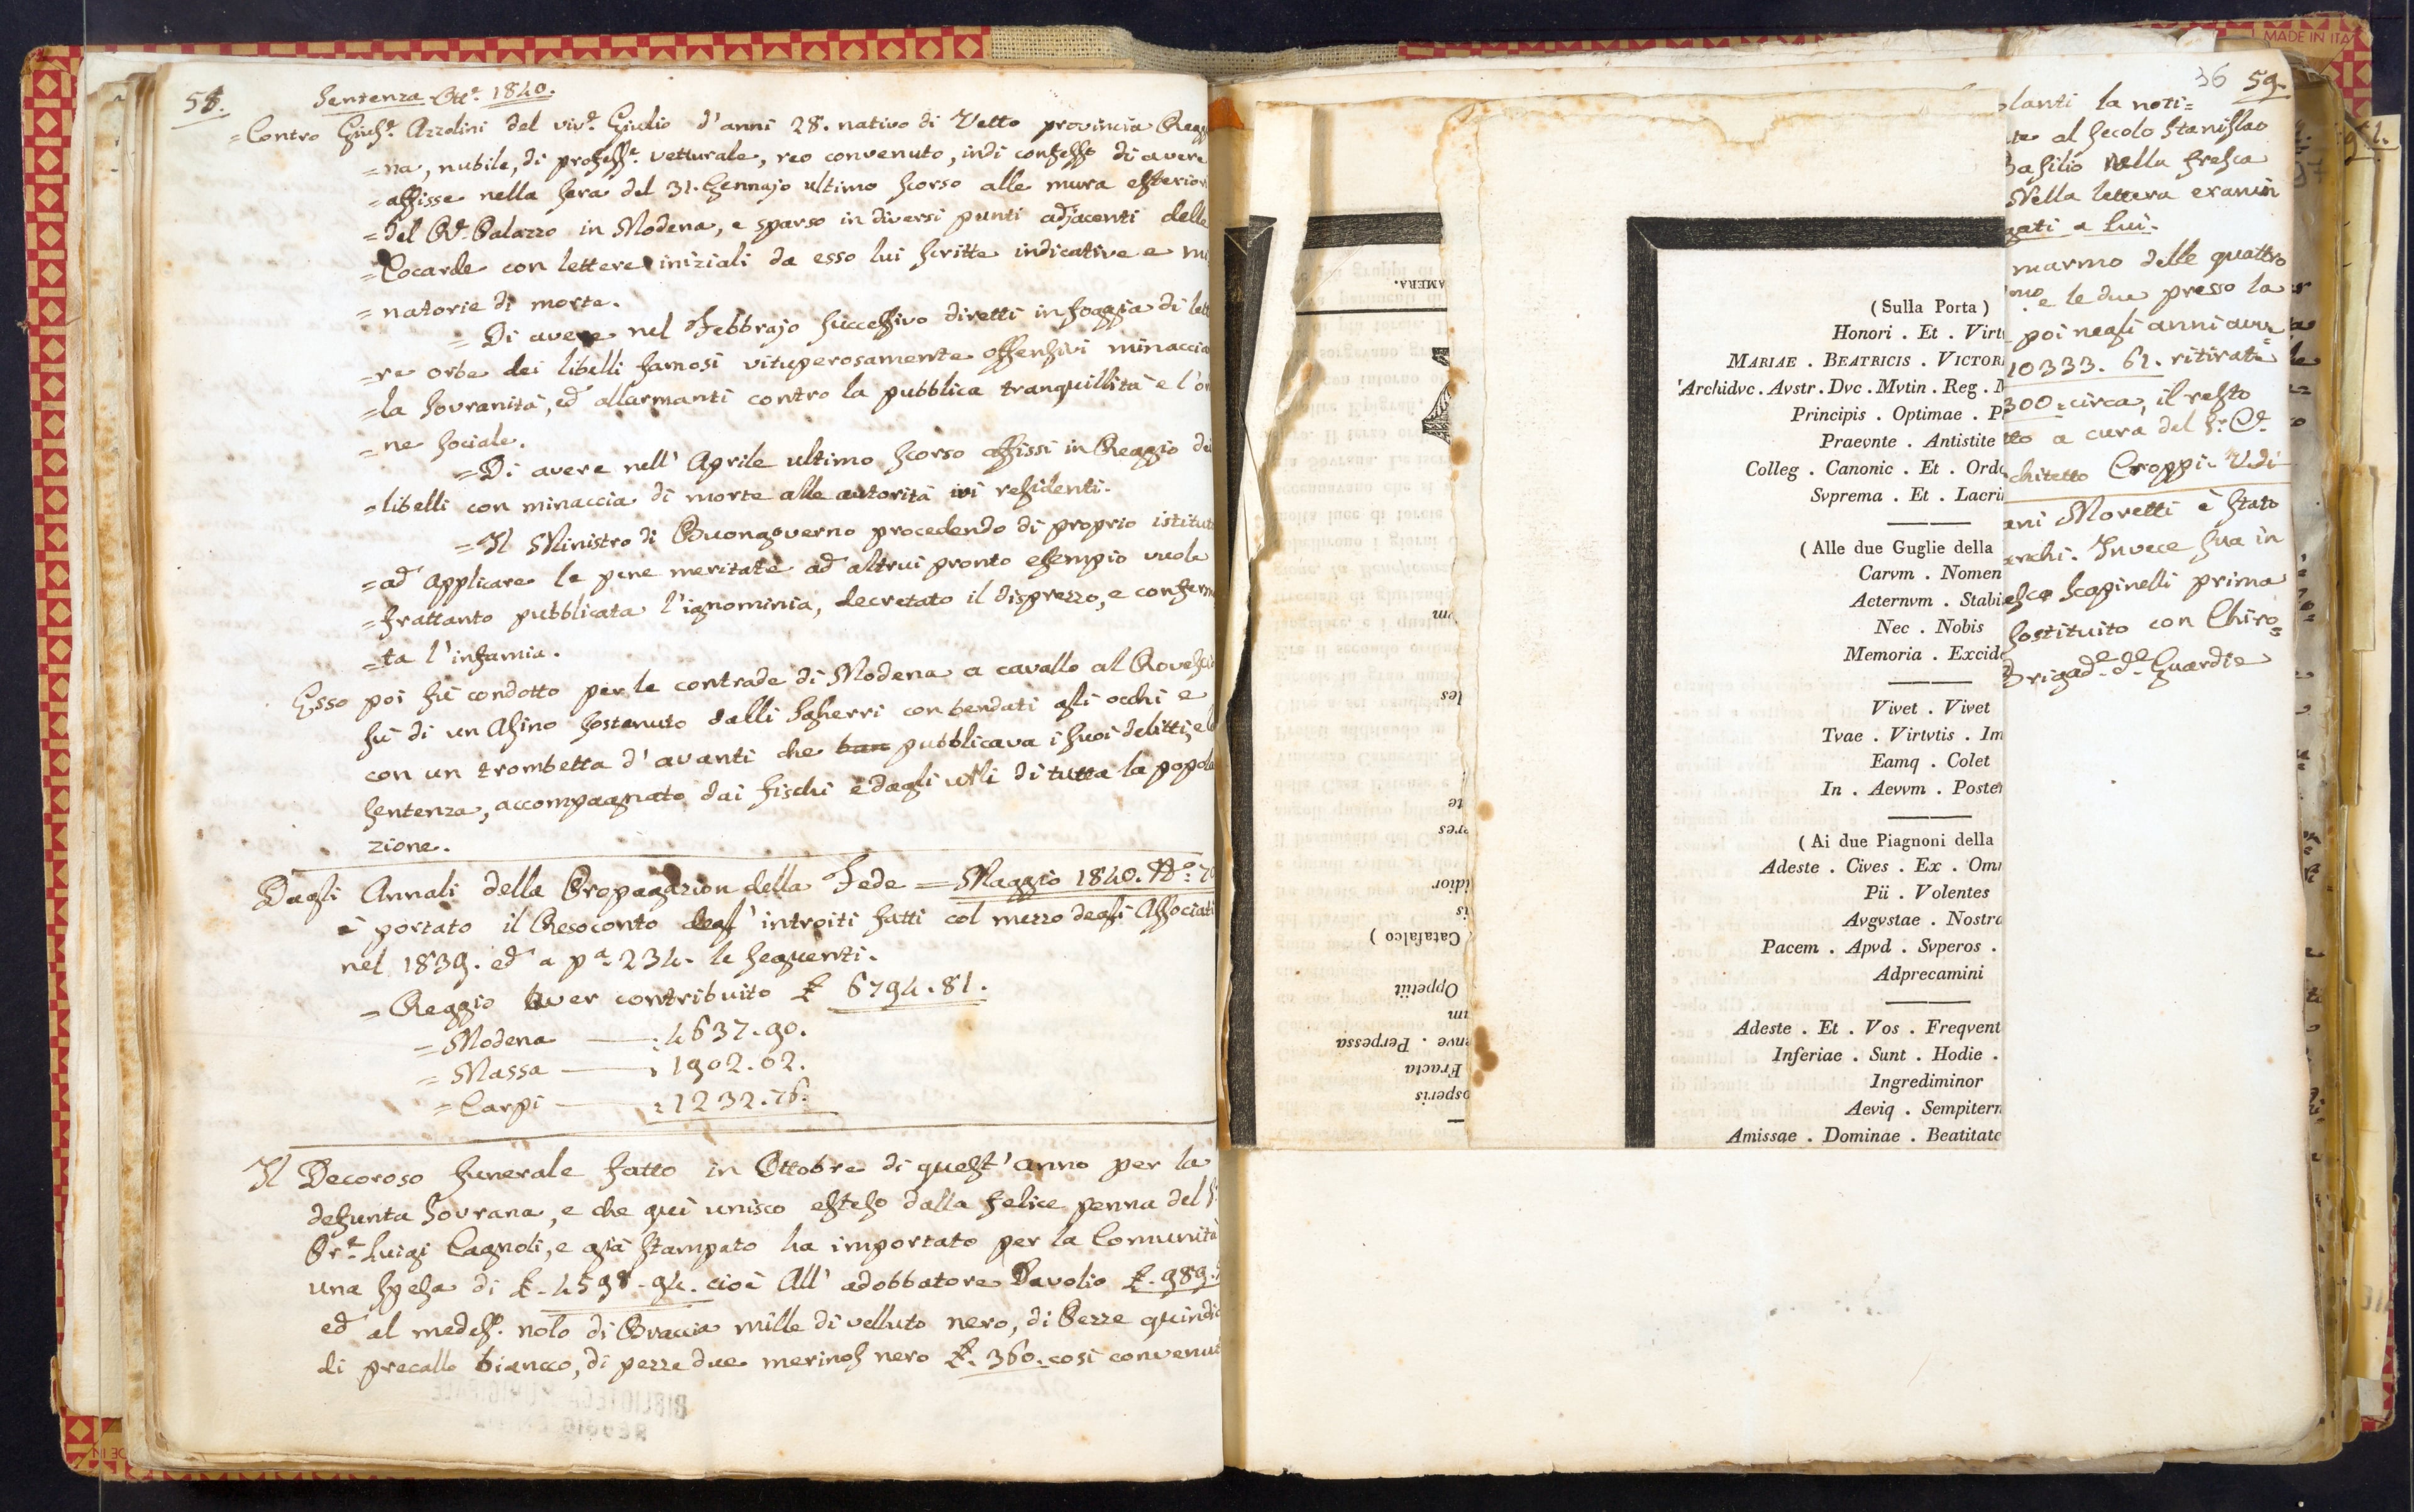 58.
Sentenza Ott.e 1840.
=Contro Gius.e Azzolini del viv.e Giulio d'anni 28. nativo di Vetto provincia
=na, nubile, di profess.e vetturale, reo convenuto, indi confesso di avere
=affisse nella sera del 31. Gennajo ultimo scorso alle mura
=del R.l Palazzo in Modena, e sparso in diversi punti adjacenti delle
=Cocarde con lettere iniziali da esso lui scritte indicative e
=natorie di morte.
=Di avere nel Febbrajo successivo diretti in foggia di
=re orbe dei libelli famosi vituperosamente offensivi
=la Sovranità, ed allarmanti contro la pubblica tranquillità e
=ne sociale.
=Di avere nell' Aprile ultimo scorso affissi in Reggio
=libelli con minaccia di morte alle autorità ivi residenti.
=Il Ministro di Buongoverno procedendo di proprio
=ad applicare le pene meritate ad altrui pronto esempio vuole
=frattanto pubblicata l'ignominia, decretato il disprezzo, e
=ta l'infamia.
Esso poi fù condotto per le contrade di Modena a cavallo al
sù di un Asino sostenuto dalli Sgherri con bendati gli occhi e
con un trombetta d'avanti che pubblicava i suoi delitti,
Sentenza, accompagnato dai fischi e dagli urli di tutta la
zione.
Dagli Annali della Propagazion della Fede = Maggio 1840. N.o
è portato il Resoconto degl' introiti fatti col mezzo degli
nel 1839. ed a p.a 234. le seguenti.
=Reggio aver contribuito £ 6794.81.
=Modena — : 4637.90.
=Massa — : 1902.62.
=Carpi — : 1232.76.
Il Decoroso funerale fatto in Ottobre di quest'anno per la
defunta Sovrana, e che quì unisco esteso dalla felice penna del
Pr.e Luigi Cagnoli, e già stampato ha importato per la Comunità
una spesa di £. 4598.94. cioè All' adobbatore Davolio £. 989.
ed al medes.o nolo di Braccia mille di velluto nero, di Pezze
di precallo biancco, di pezze due merinos nero £. 360. così
BIBLIOTECA MUNICIPALE
REGGIO EMILIA
AMERA.
vm
les
te
res
idior
is
Catafalco )
Oppetiit
um
enve . Perpessa
Fracta
osperis
(Sulla Porta)
Honori . Et . Virt
MARIAE . BEATRICIS . VICTORI
Archidvc . Avstr . Dvc . Mvtin . Reg .
Principis . Optimae . P
Praevnte . Antistite
Colleg . Canonic . Et . Ord
Svprema . Et . Lacri
(Alle due Guglie della
Carvm . Nomen
Aeternvm . Stabi
Nec . Nobis
Memoria . Excid
Vivet . Vivet
Tvae . Virtvtis . Im
Eamq . Colet
In . Aevvm . Poste
(Ai due Piagnoni della
Adeste . Cives . Ex . Om
Pii . Volentes
Avgvstae . Nostra
Pacem . Apvd . Svperos .
Adprecamini
Adeste . Et . Vos . Freqvent
Inferiae . Sunt . Hodie .
Ingrediminor
Aeviq . Sempitern
Amissae . Dominae . Beatitat
36 59.
lanti la noti=
te al secolo Stanislao
Basilio nella fresca
Nella lettera
gati a lui.
marmo delle quattro
e le due presso la
poi negli anni
10333. 61. ritirati
300. circa, il resto
a cura del
chitetto Croppi.
ani Moretti è stato
Invece sua in
Scapinelli prima
sostituito con Chiro=
Brigad.e d.e Guardie
MADE IN ITA